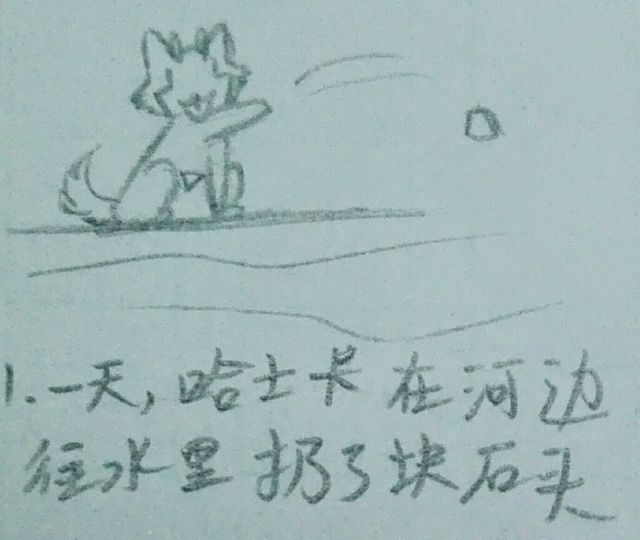 1.一天,哈士卡在河边
往水里扔了块石头